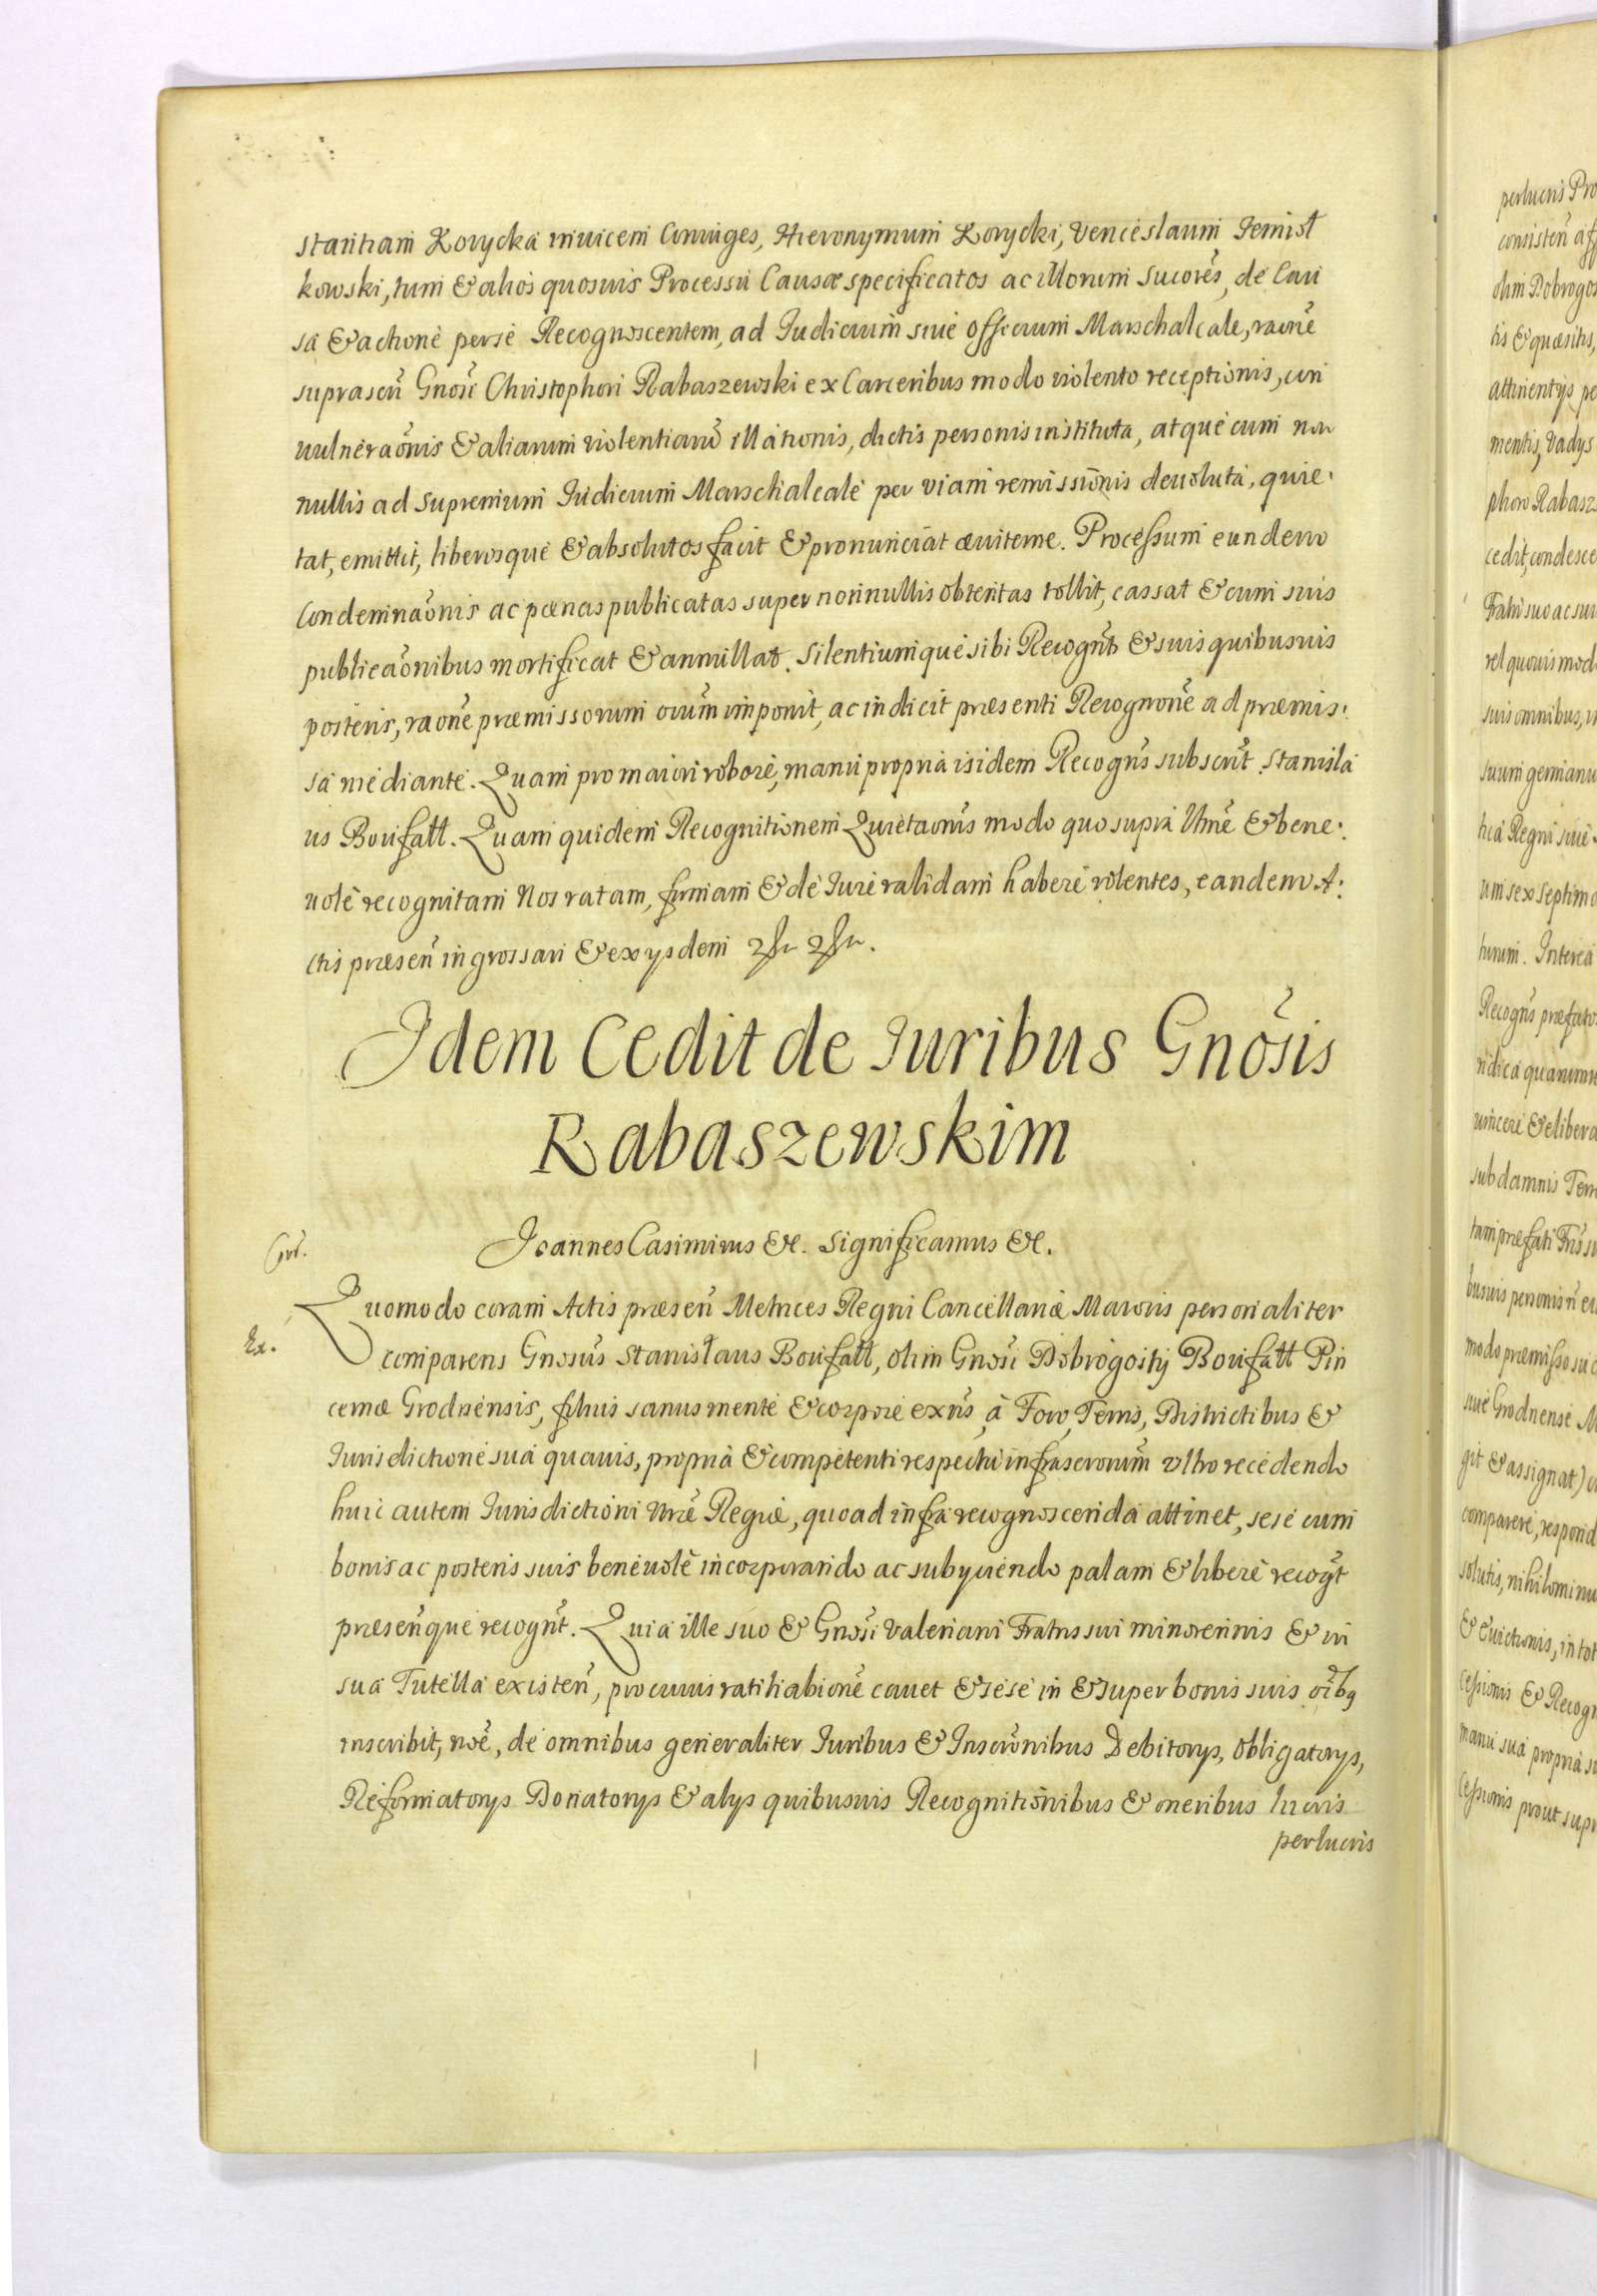 stantiam Korycka invicem Coniuges, Hieronymum Korycki, Venceslaum Jemioł
kowski, tum & alios quosvis Processu Causæ specificatos ac illorum Sucores, de Cau
sa & actione per se Recognoscentem, ad Iudicium sive officium Marschalcale, raone
suprascri Gnosi Christophori Rabaszewski ex Carceribus modo violento receptionis, cum
vulneraonis & aliarum violentiaru illationis, dictis personis instituta, atque cum non
nullis ad supremum Iudicium Marschalcale per viam remissionis devoluta, quie:
tat, emittit, liberosque & absolutos facit & pronunciat æviterne. Processum eundem
Condemnaonis ac pænas publicatas super nonnullis obtentas tollit, cassat & cum suis
publicaonibus mortificat & annullat. Silentiumque sibi Recognti & suis quibusvis
posteris, raone præmissorum oium imponit, ac indicit præsenti Recognone ad præmis:
sa mediante. Quam pro maiori robore, manu propria isidem Recogns subscrit. Stanisla
us Bonifatt. Quam quidem Recognitionem Quietaonis modo quo supra Utne & bene:
vole recognitam Nos ratam, firmam & de Iure validam habere volentes, eandem A:
ctis præsen ingrossari & ex ysdem
Idem Cedit de Iuribus Gnosis
Rabaszewskim
Ioannes Casimirus &c. Significamus &c.
Quomodo coram Actis præsen Metrices Regni Cancellariæ Maioris personaliter
Ex.
comparens Gnosus Stanisłaus Bonifatt, olim Gnosi Dobrogostij Bonifatt Pin
cernæ Grodnensis, filius sanus mente & corpore exns, à Foro, Terris, Districtibus &
Iurisdictione sua quavis, propria & competenti respectu infrascrorum ultro recedendo
huic autem Iurisdictioni Nræ Regiæ, quoad infra recognoscenda attinet, sese cum
bonis ac posteris suis benevole incorporando ac subyciendo palam & libere recogt
præsenque recognt. Quia ille suo & Gnosi Valeriani Fratris sui minorennis & in
sua Tutella existen, pro cuius ratihabione cavet & sese in & super bonis suis oibq
inscribit, noe, de omnibus generaliter Iuribus & Inscronibus Debitorys, Obligatorys,
Reformatorys Donatorys & alys quibusvis Recognitionibus & oneribus lucris
perlucris